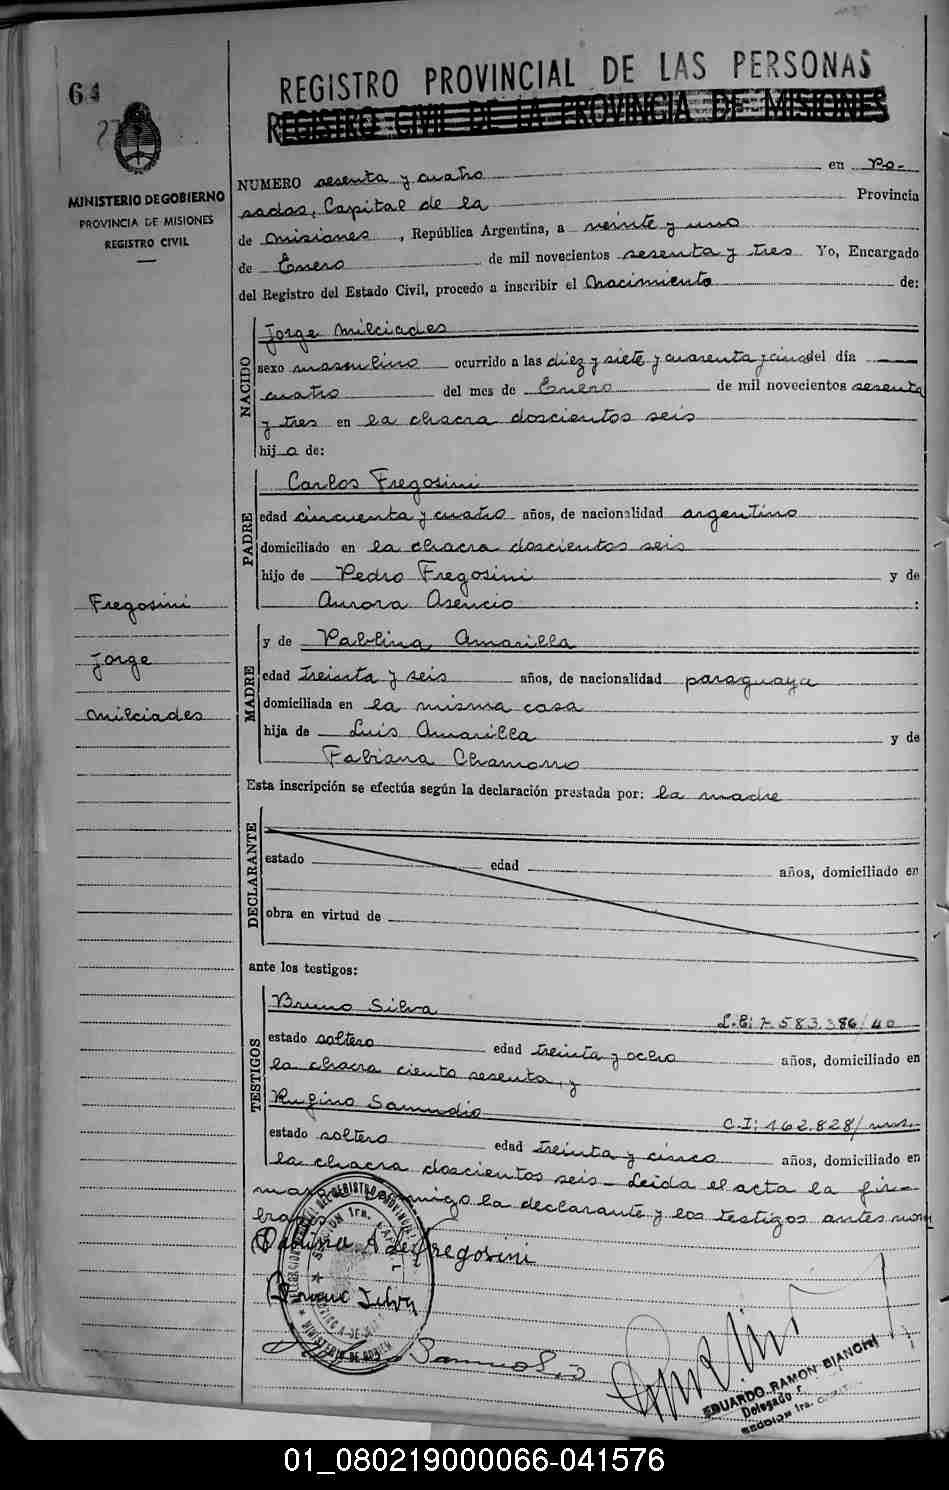 64
REGISTRO PROVINCIAL DE LAS PERSONAS
REGISTRO CIVIL DE LA PROVINCIA DE MISIONES
MINISTERIO DE GOBIERNO
PROVINCIA DE MISIONES
REGISTRO CIVIL
NUMERO sesenta y cuatro en Po-
sadas, Capital de la Provincia
de Misiones, República Argentina, a veinte y uno
de Enero de mil novecientos sesenta y tres Yo, Encargado
del Registro del Estado Civil, procedo a inscribir el Nacimiento de:
NACIDO
Jorge Milciades
sexo masculino ocurrido a las diez y siete y cuarenta y cinco del día
cuatro del mes de Enero de mil novecientos sesenta
y tres en la chacra doscientos seis
hijo de:
PADRE
Carlos Fregosini
edad cincuenta y cuatro años, de nacionalidad argentino
domiciliado en la chacra doscientos seis
hijo de Pedro Fregosini y de
Aurora Asencio :
Fregosini
Jorge
Milciades
MADRE
y de Pablina Amarilla
edad treinta y seis años, de nacionalidad paraguaya
domiciliada en la misma casa
hija de Luis Amarilla y de
Fabiana Chamorro
Esta inscripción se efectúa según la declaración prestada por: la madre
DECLARANTE
estado edad años, domiciliado en
obra en virtud de
ante los testigos:
TESTIGOS
Bruno Silva
L.E: 7.583.386/40
estado soltero edad treinta y ocho años, domiciliado en
la chacra ciento sesenta, y
Rufino Samudio C.I: 162.828/mns.
estado soltero edad treinta y cinco años, domiciliado en
la chacra doscientos seis - Leida el acta la fir-
man conmigo la declarante y los testigos antes nom
brados
Pablina A de Fregosini
Bruno Silva
Samudio
EDUARDO RAMON BIANCHI
Delegado
SECCION 1ra.
01_080219000066-041576